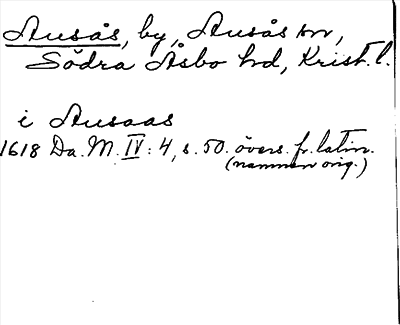 Ausås, by, Ausås sn,
Södra Åsbo hd, Krist. l.
i Ausaas
1618 Da. M. IV: 4, s. 50. övers. fr. latin.
(namnen orig.)